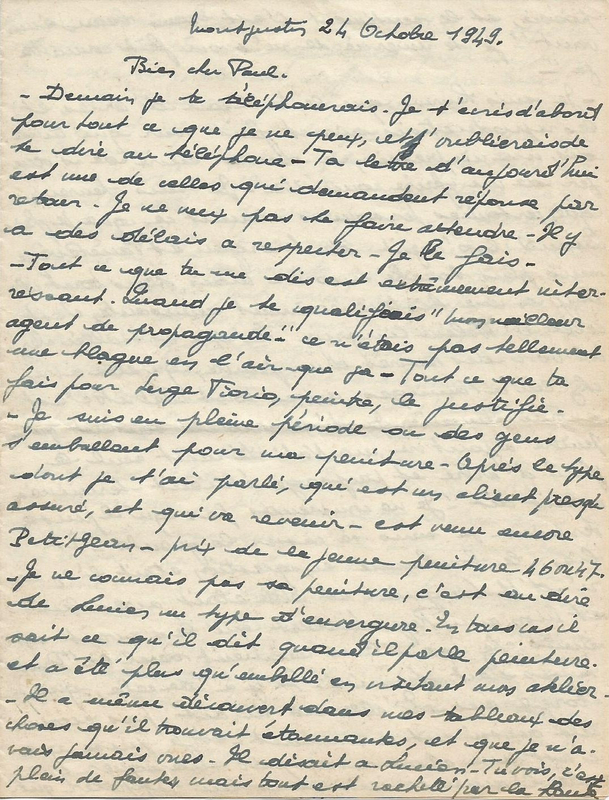 Montjustin 24 Octobre 1949.
Bien cher Paul.
- Demain je te téléphonerais. Je t'écris d'abord
pour tout ce que je ne peux, et j'oublierais de
te dire au téléphone - Ta lettre d'aujourd'hui
est une de celles qui demandent réponse par
retour - Je ne veux pas te faire attendre - Il y
a des délais a respecter - Je le fais -
- Tout ce que tu me dis est extrêmement inter-
ressant. Quand je te qualifiais "mon meilleur
agent de propagande -" ce n'étais pas tellement
une blague en l'air que ça - Tout ce que tu
fais pour Serge Fiorio, peintre, le justifie -
- Je suis en pleine période ou des gens
s'emballent pour ma peinture - Après le type
dont je t'ai parlé, qui est un client presque
assuré, et qui va revenir - est venu encore
Petitjean - prix de la jeune peinture 46 ou 47.
- Je ne connais pas sa peinture, c'est au dire
de Lucien un type d'envergure. En tous cas il
sait ce qu'il dit quand il parle peinture.
et a été plus qu'emballé en visitant mon atelier -
- Il a même découvert dans mes tableaux des
choses qu'il trouvait étonnantes, et que je n'a-
vais jamais vues - Il disait a Lucien - Tu vois, c'est
plein de fautes mais tout est racheté par la